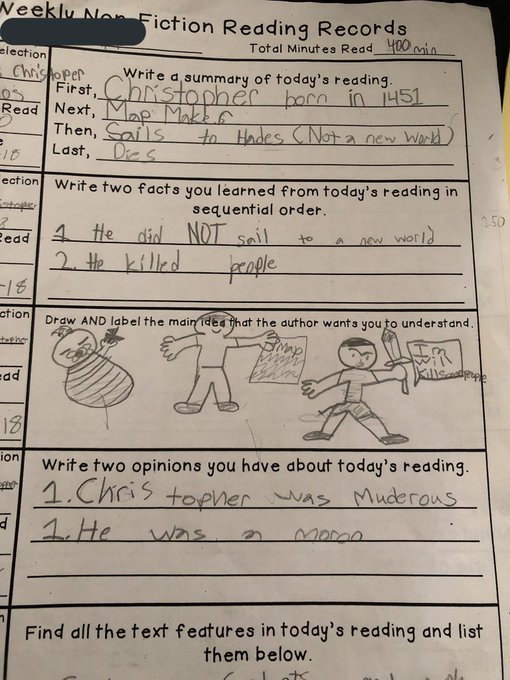 Weekly Non-Fiction Reading Records
Total Minutes Read 400 min
election
Christoper
Read
-18
Write a summary of today's reading.
First, Christopher born in 1451
Next, Map Maker
Then, Sails to Hades (Not a new world)
Last, Dies
ection
Read
-18
Write two facts you learned from today's reading in
sequential order.
1. He did NOT sail to a new world
2. He killed people
2.50
ction
ead
18
Draw AND label the main idea that the author wants you to understand.
Map
I
will
Kill good people
ion
d
Write two opinions you have about today's reading.
1. Christopher was Muderous
1. He was a moron
n
Find all the text features in today's reading and list
them below.